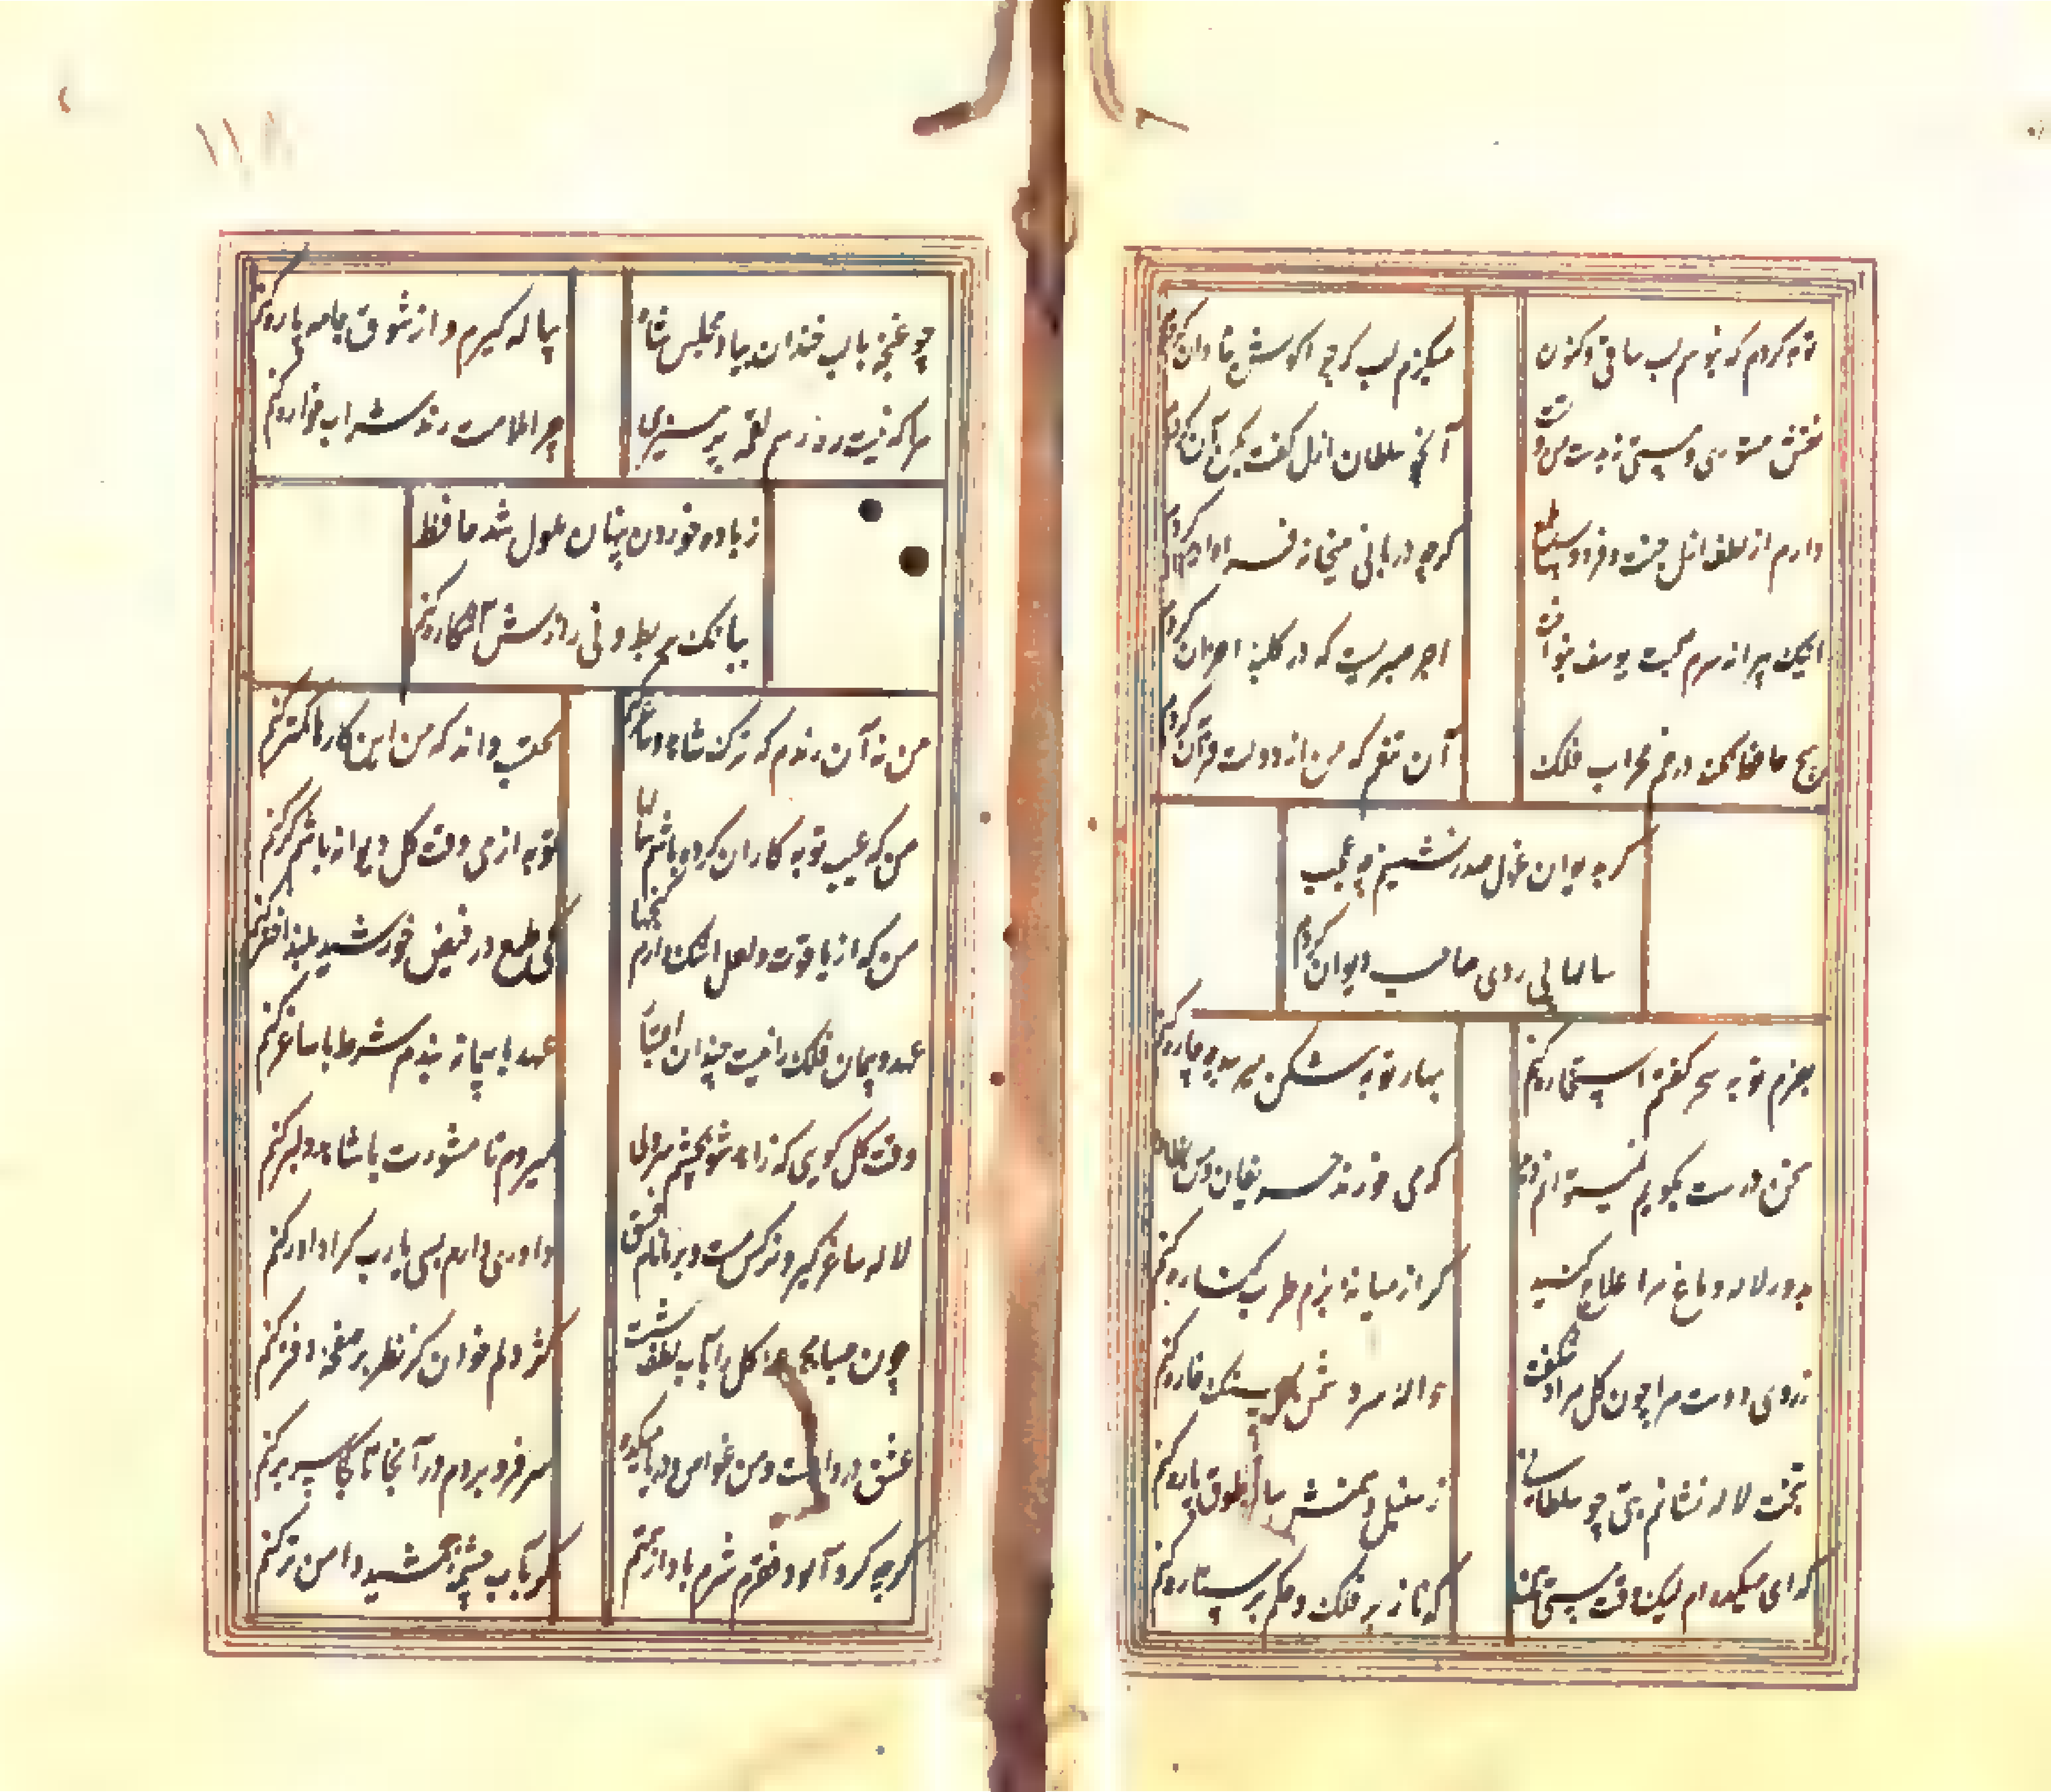 توبه کردم که نبوسم لب ساقی و کنون
میگزم لب که چرا گوش بنادان کردم
نقش مستوری و مستی نه بدست من و تست
آنچه سلطان ازل گفت بکن آن کردم
دارم از لطف ازل جنت فردوس طمع
گرچه دربانی میخانه فراوان کردم
اینکه پیرانه سرم صحبت یوسف بنواخت
اجر صبریست که در کلبه احزان کردم
هیچ حافظ نکند در خم محراب فلک
آن تنعم که من از دولت قرآن کردم
گر به دیوان غزل صدرنشینم چه عجب
سالها بندگی صاحب دیوان کردم
بعزم توبه سحر گفتم استخاره کنم
بهار توبه شکن میرسد چه چاره کنم
سخن درست بگویم نمیتوانم دید
که می خورند حریفان و من نظاره کنم
بدور لاله دماغ مرا علاج کنید
گر از میانه بزم طرب کناره کنم
ز روی دوست مرا چون گل مراد شکفت
حواله سر دشمن بسنگ خاره کنم
بتخت لاله نشانم بتی چو سلطانی
ز سنبل و سمنش ساز طوق و یاره کنم
گدای میکده ام لیک وقت مستی بین
که ناز بر فلک و حکم بر ستاره کنم
چو غنچه با لب خندان بیاد مجلس شاه
پیاله گیرم و از شوق جامه پاره کنم
مرا که نیست ره و رسم لقمه پرهیزی
چرا ملامت رند شرابخواره کنم
ز باده خوردن پنهان ملول شد حافظ
ببانگ بربط و نی رازش آشکاره کنم
من نه آن رندم که ترک شاهد و ساغر کنم
محتسب داند که من این کارها کمتر کنم
من که عیب توبه کاران کرده باشم بارها
توبه از می وقت گل دیوانه باشم گر کنم
من که از یاقوت و لعل اشک دارم گنجها
کی طمع در فیض خورشید بلند اختر کنم
عهد و پیمان فلک را نیست چندان اعتبار
عهد با پیمانه بندم شرط با ساغر کنم
وقت گل گویی که زاهد شو بچشم و سر ولی
میروم تا مشورت با شاهد و دلبر کنم
لاله ساغر گیر و نرگس مست و بر ما نام فسق
داوری دارم بسی یا رب کرا داور کنم
چون صبا مجموعه گل را بآب لطف شست
کژ دلم خوان گر نظر بر صفحه دفتر کنم
عشق دردانه است و من غواص و دریا میکده
سر فرو بردم در آنجا تا کجا سر بر کنم
گرچه گرد آلود فقرم شرم باد از همتم
گر بآب چشمه خورشید دامن تر کنم